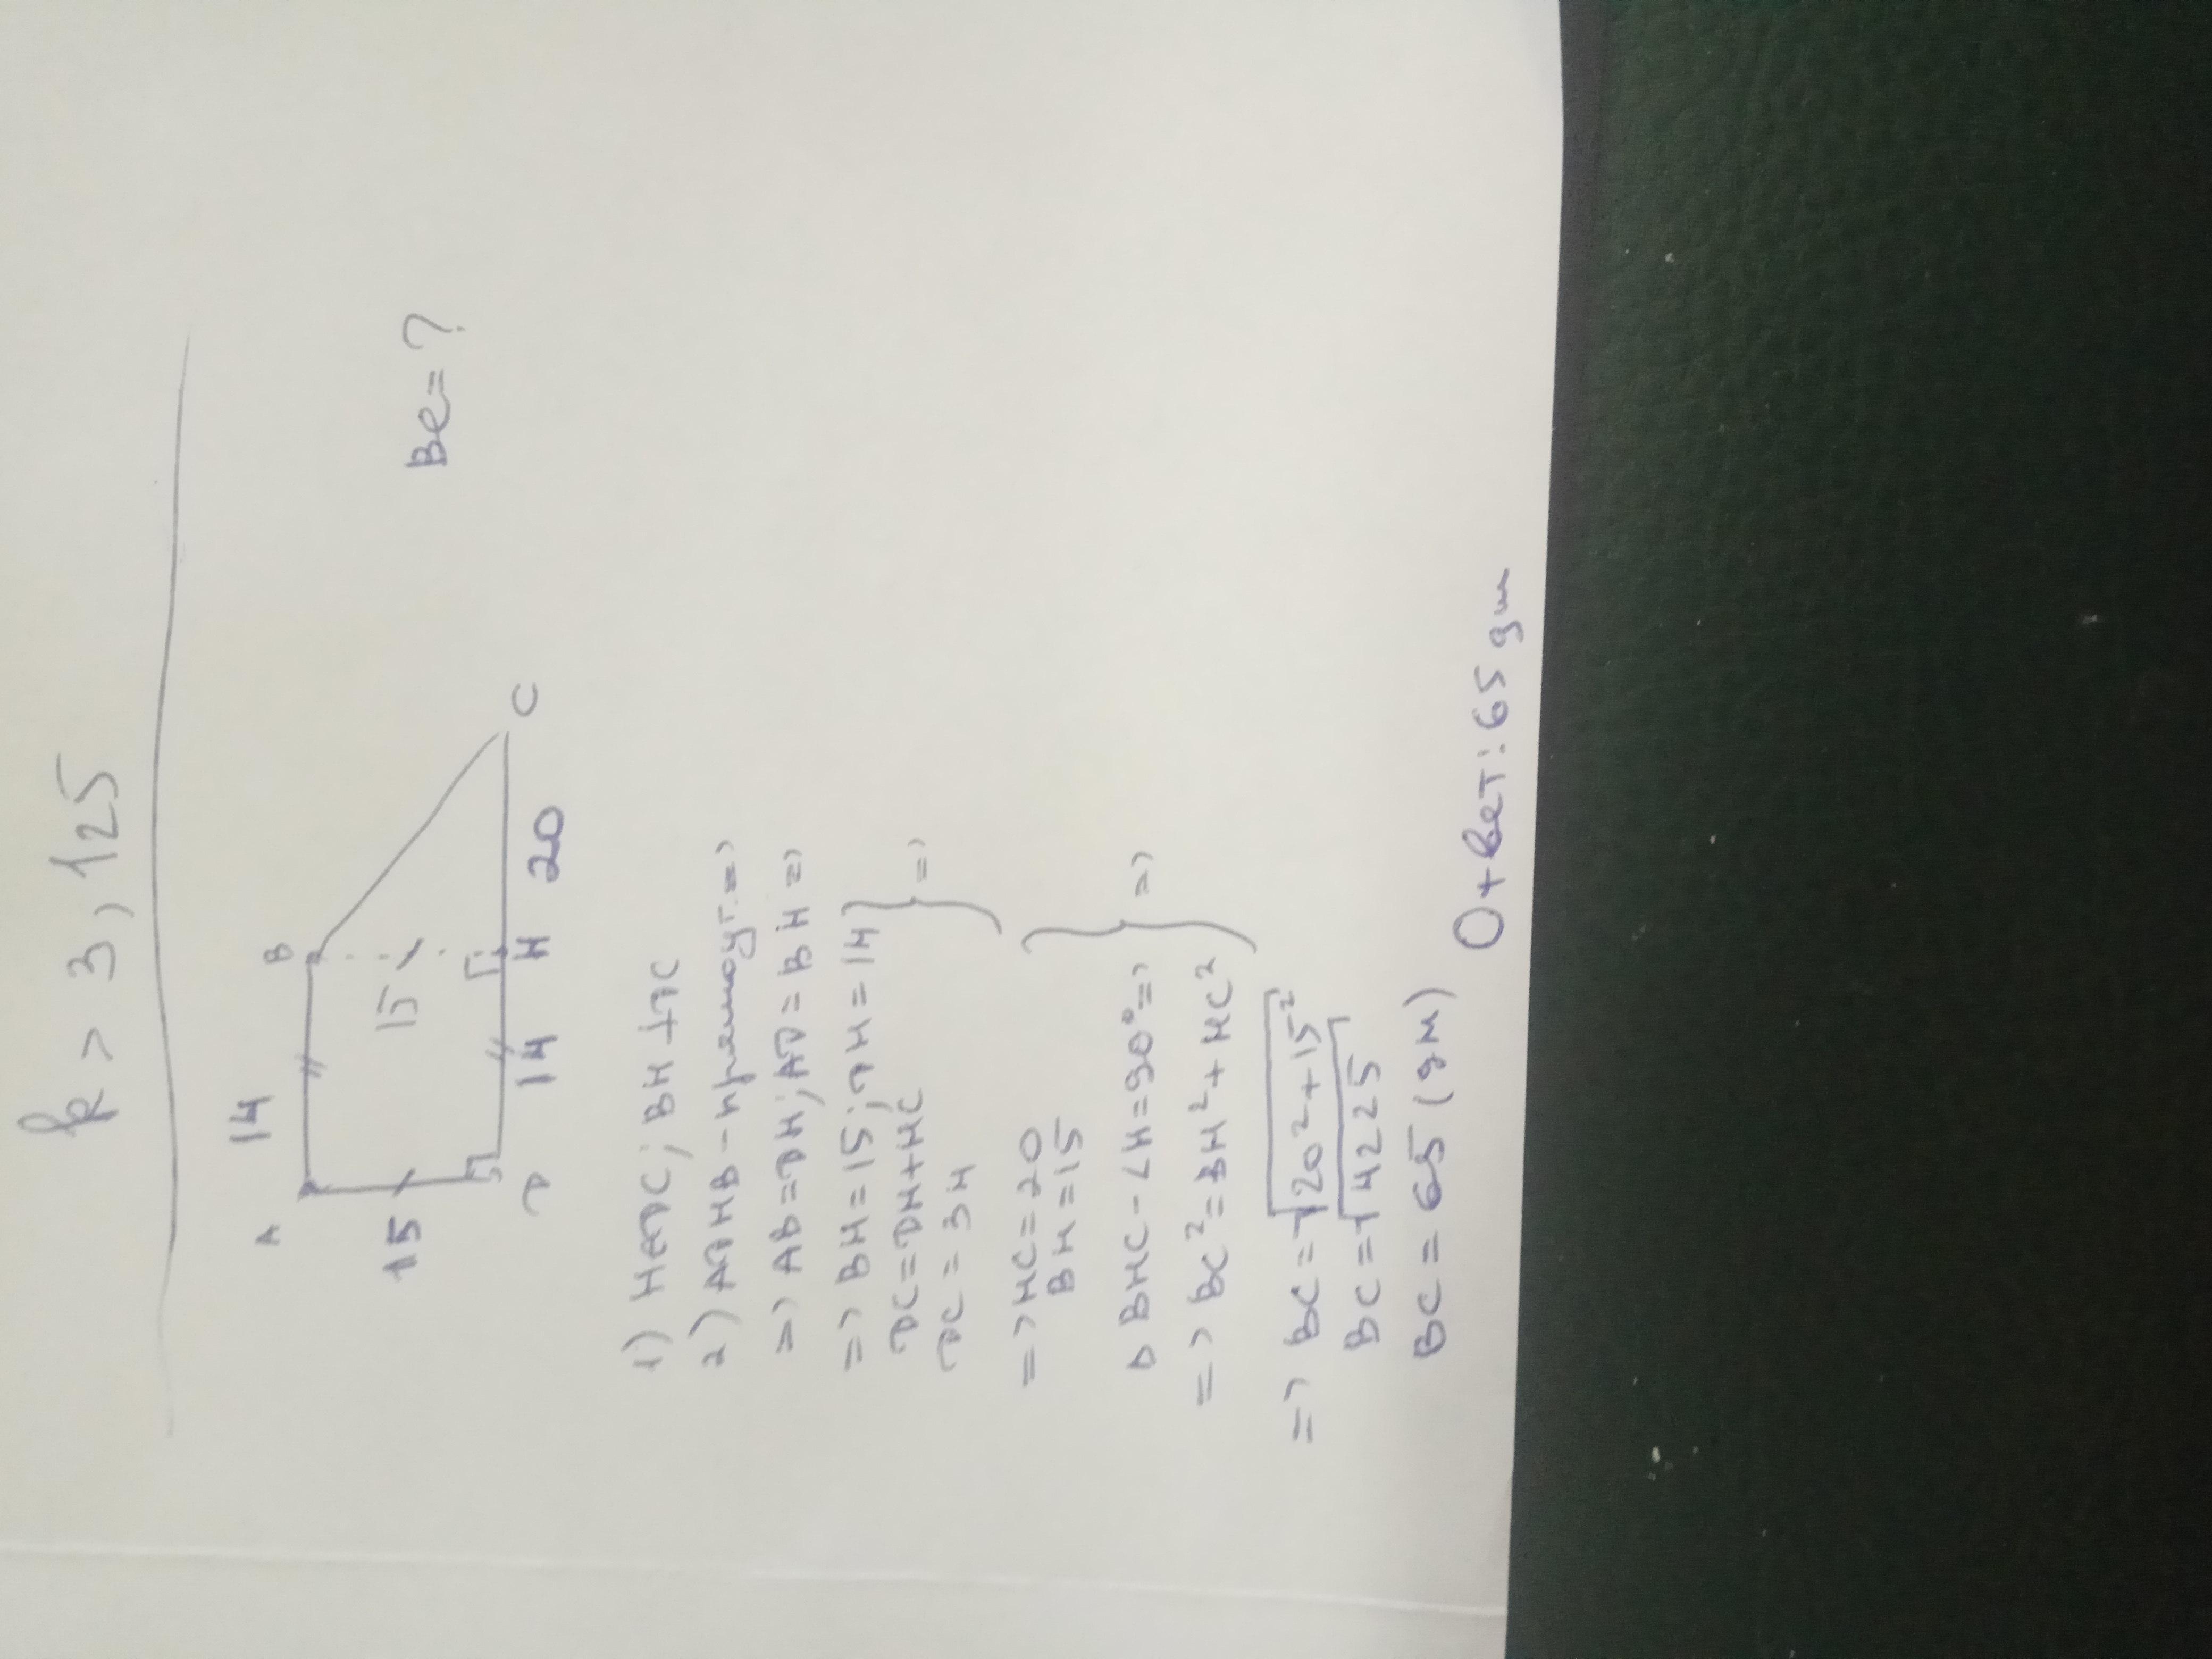 k > 3,125
14
A
B
15
15
Be=?
D
14
H
20
C
1) H∈DC; BH⊥DC
2) ADHB - прямоуг. =>
=> AB=DH; AD=BH =>
=> BH=15; DH=14
DC=DH+HC
DC=34
=>
=> HC=20
BH=15
△BHC-∠H=90°=>
=> BC²=BH²+HC²
=>
=> BC=√20²+15²
BC=√4225
BC=65 (дм)
Ответ: 65 дм